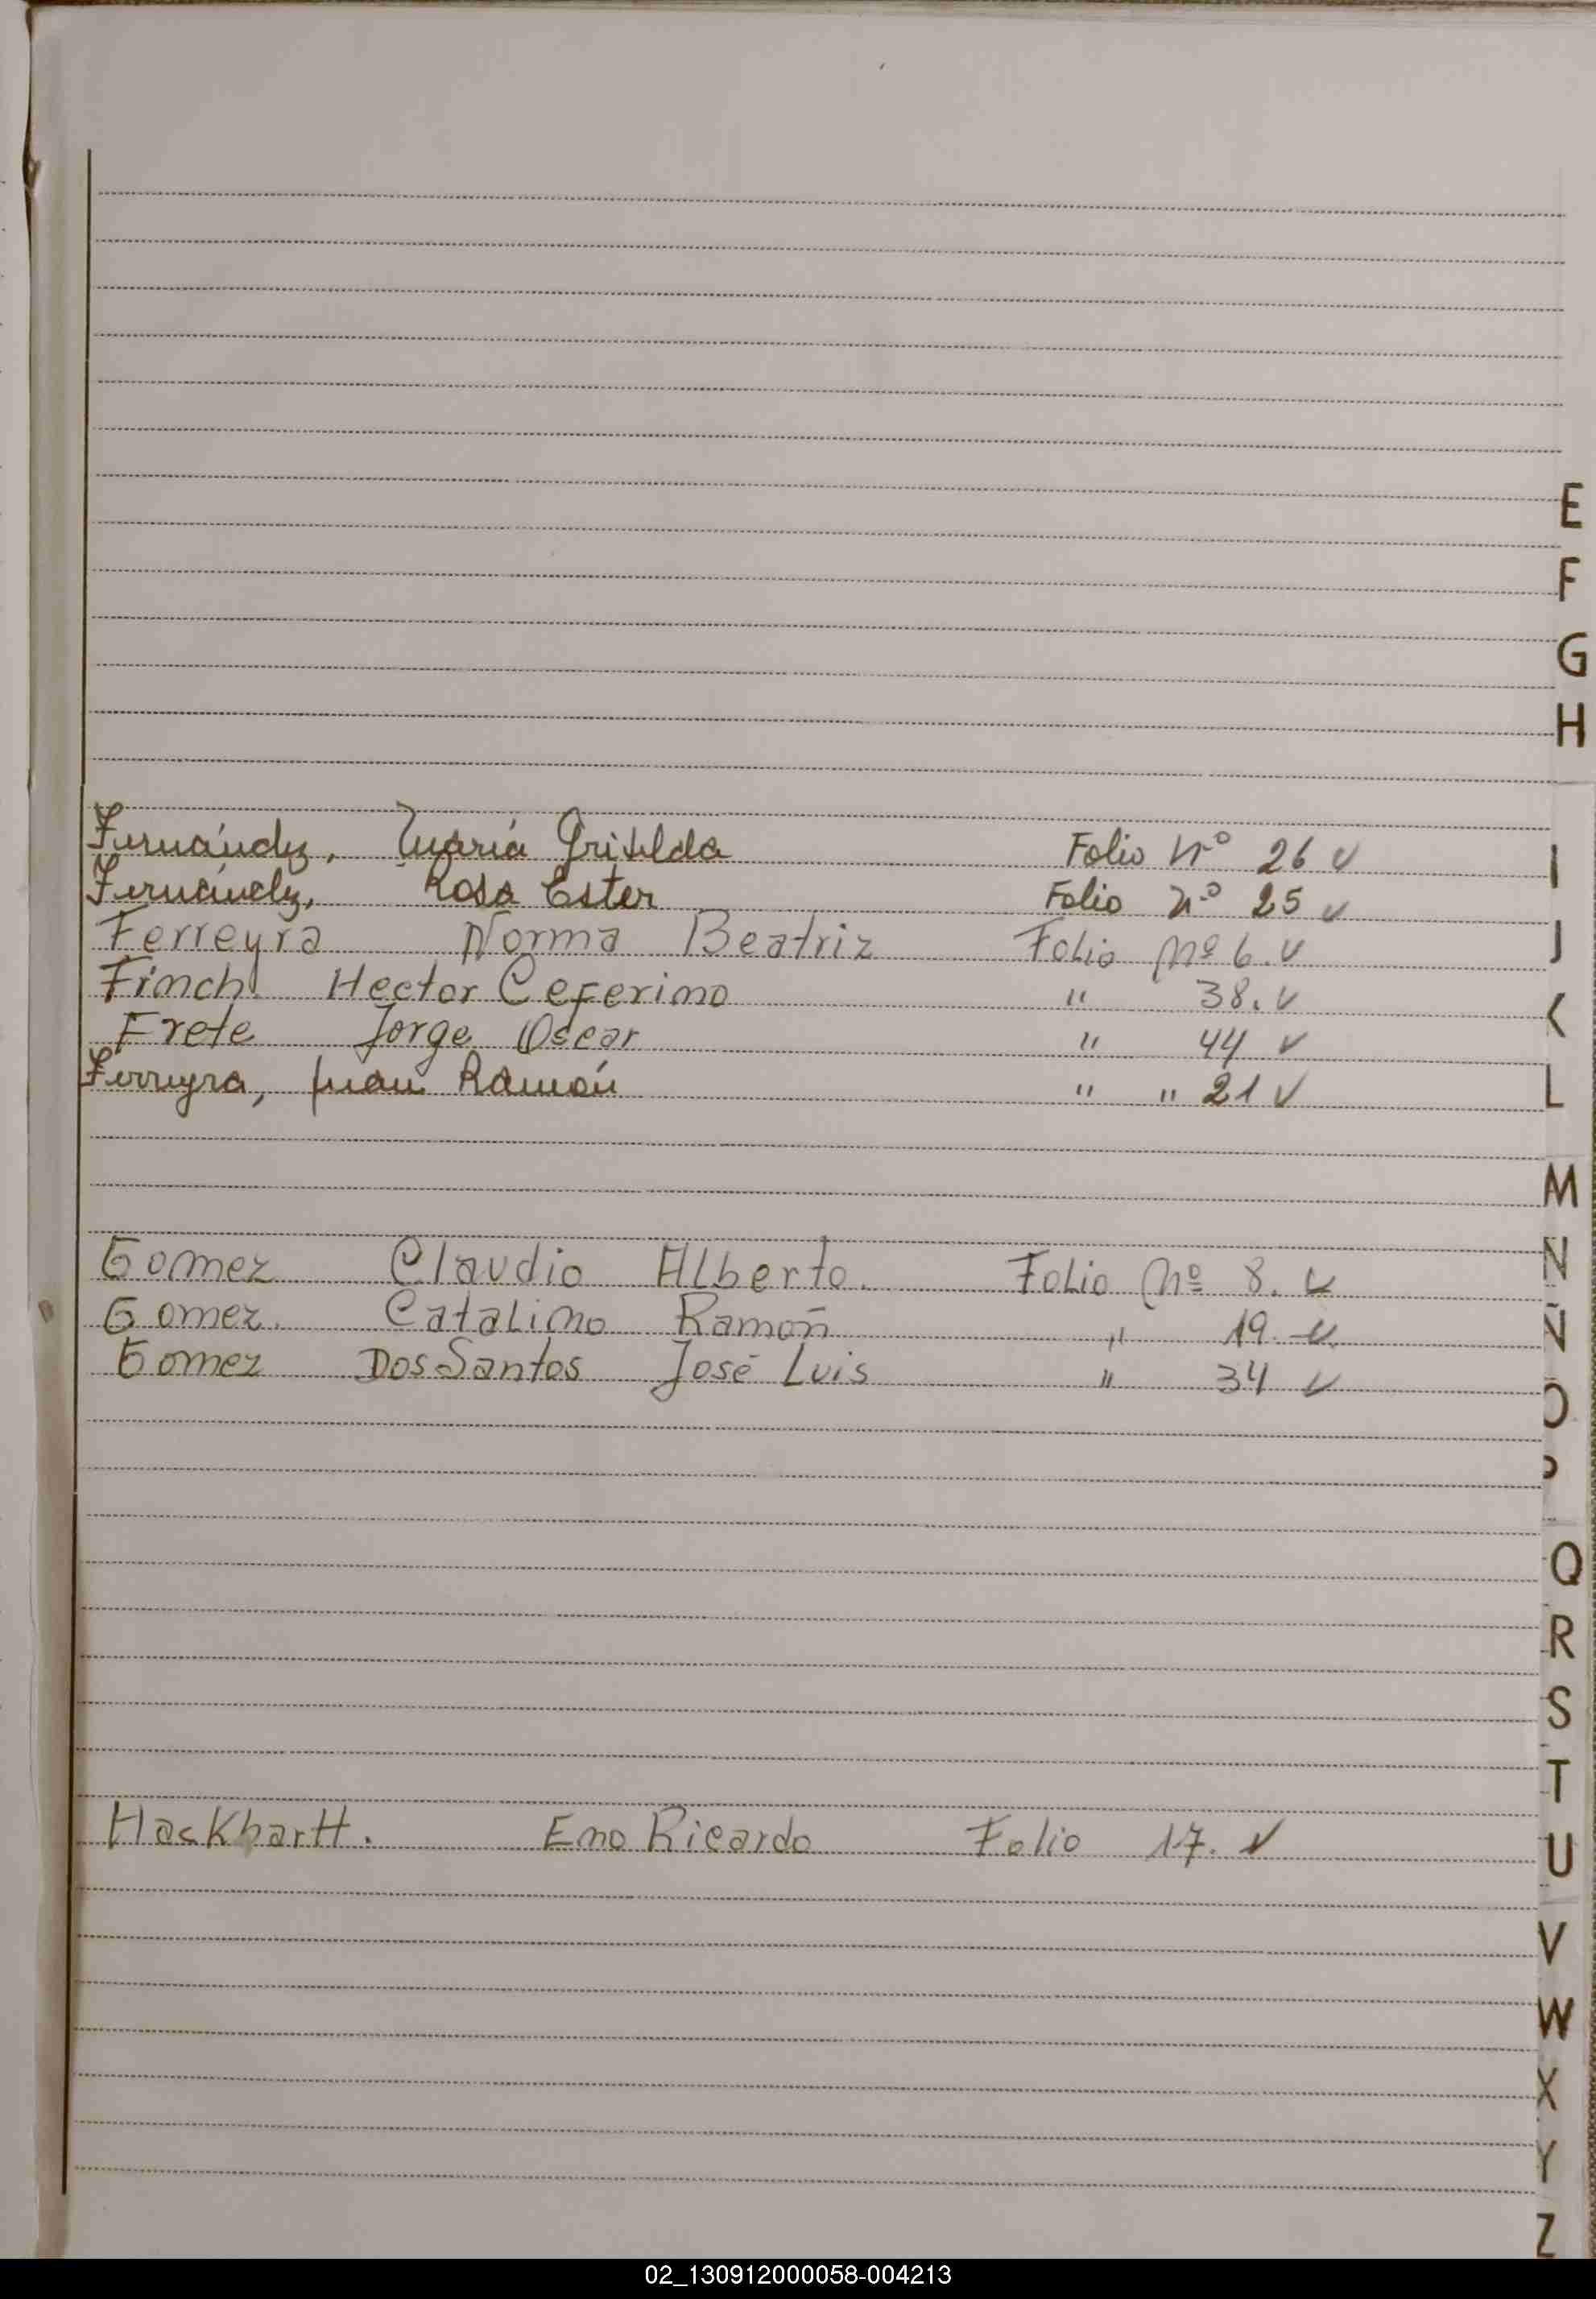 E
F
G
H
Fernández, María Griselda Folio Nº 26 ✓
Fernández, Rosa Ester Folio Nº 25 ✓
Ferreyra Norma Beatriz Folio Nº 6. ✓
Finch Hector Ceferino " 38. ✓
Frete Jorge Oscar " 44 ✓
Ferreyra, Juan Ramón " " 21 ✓
I
J
K
L
M
N
Gomez Claudio Alberto. Folio Nº 8. ✓
Gomez. Catalino Ramón " 19. ✓
Gomez Dos Santos José Luis " 34 ✓
Ñ
O
P
Q
R
S
T
Hackbartt. Eno Ricardo Folio 17. ✓
U
V
W
X
Y
Z
02_130912000058-004213